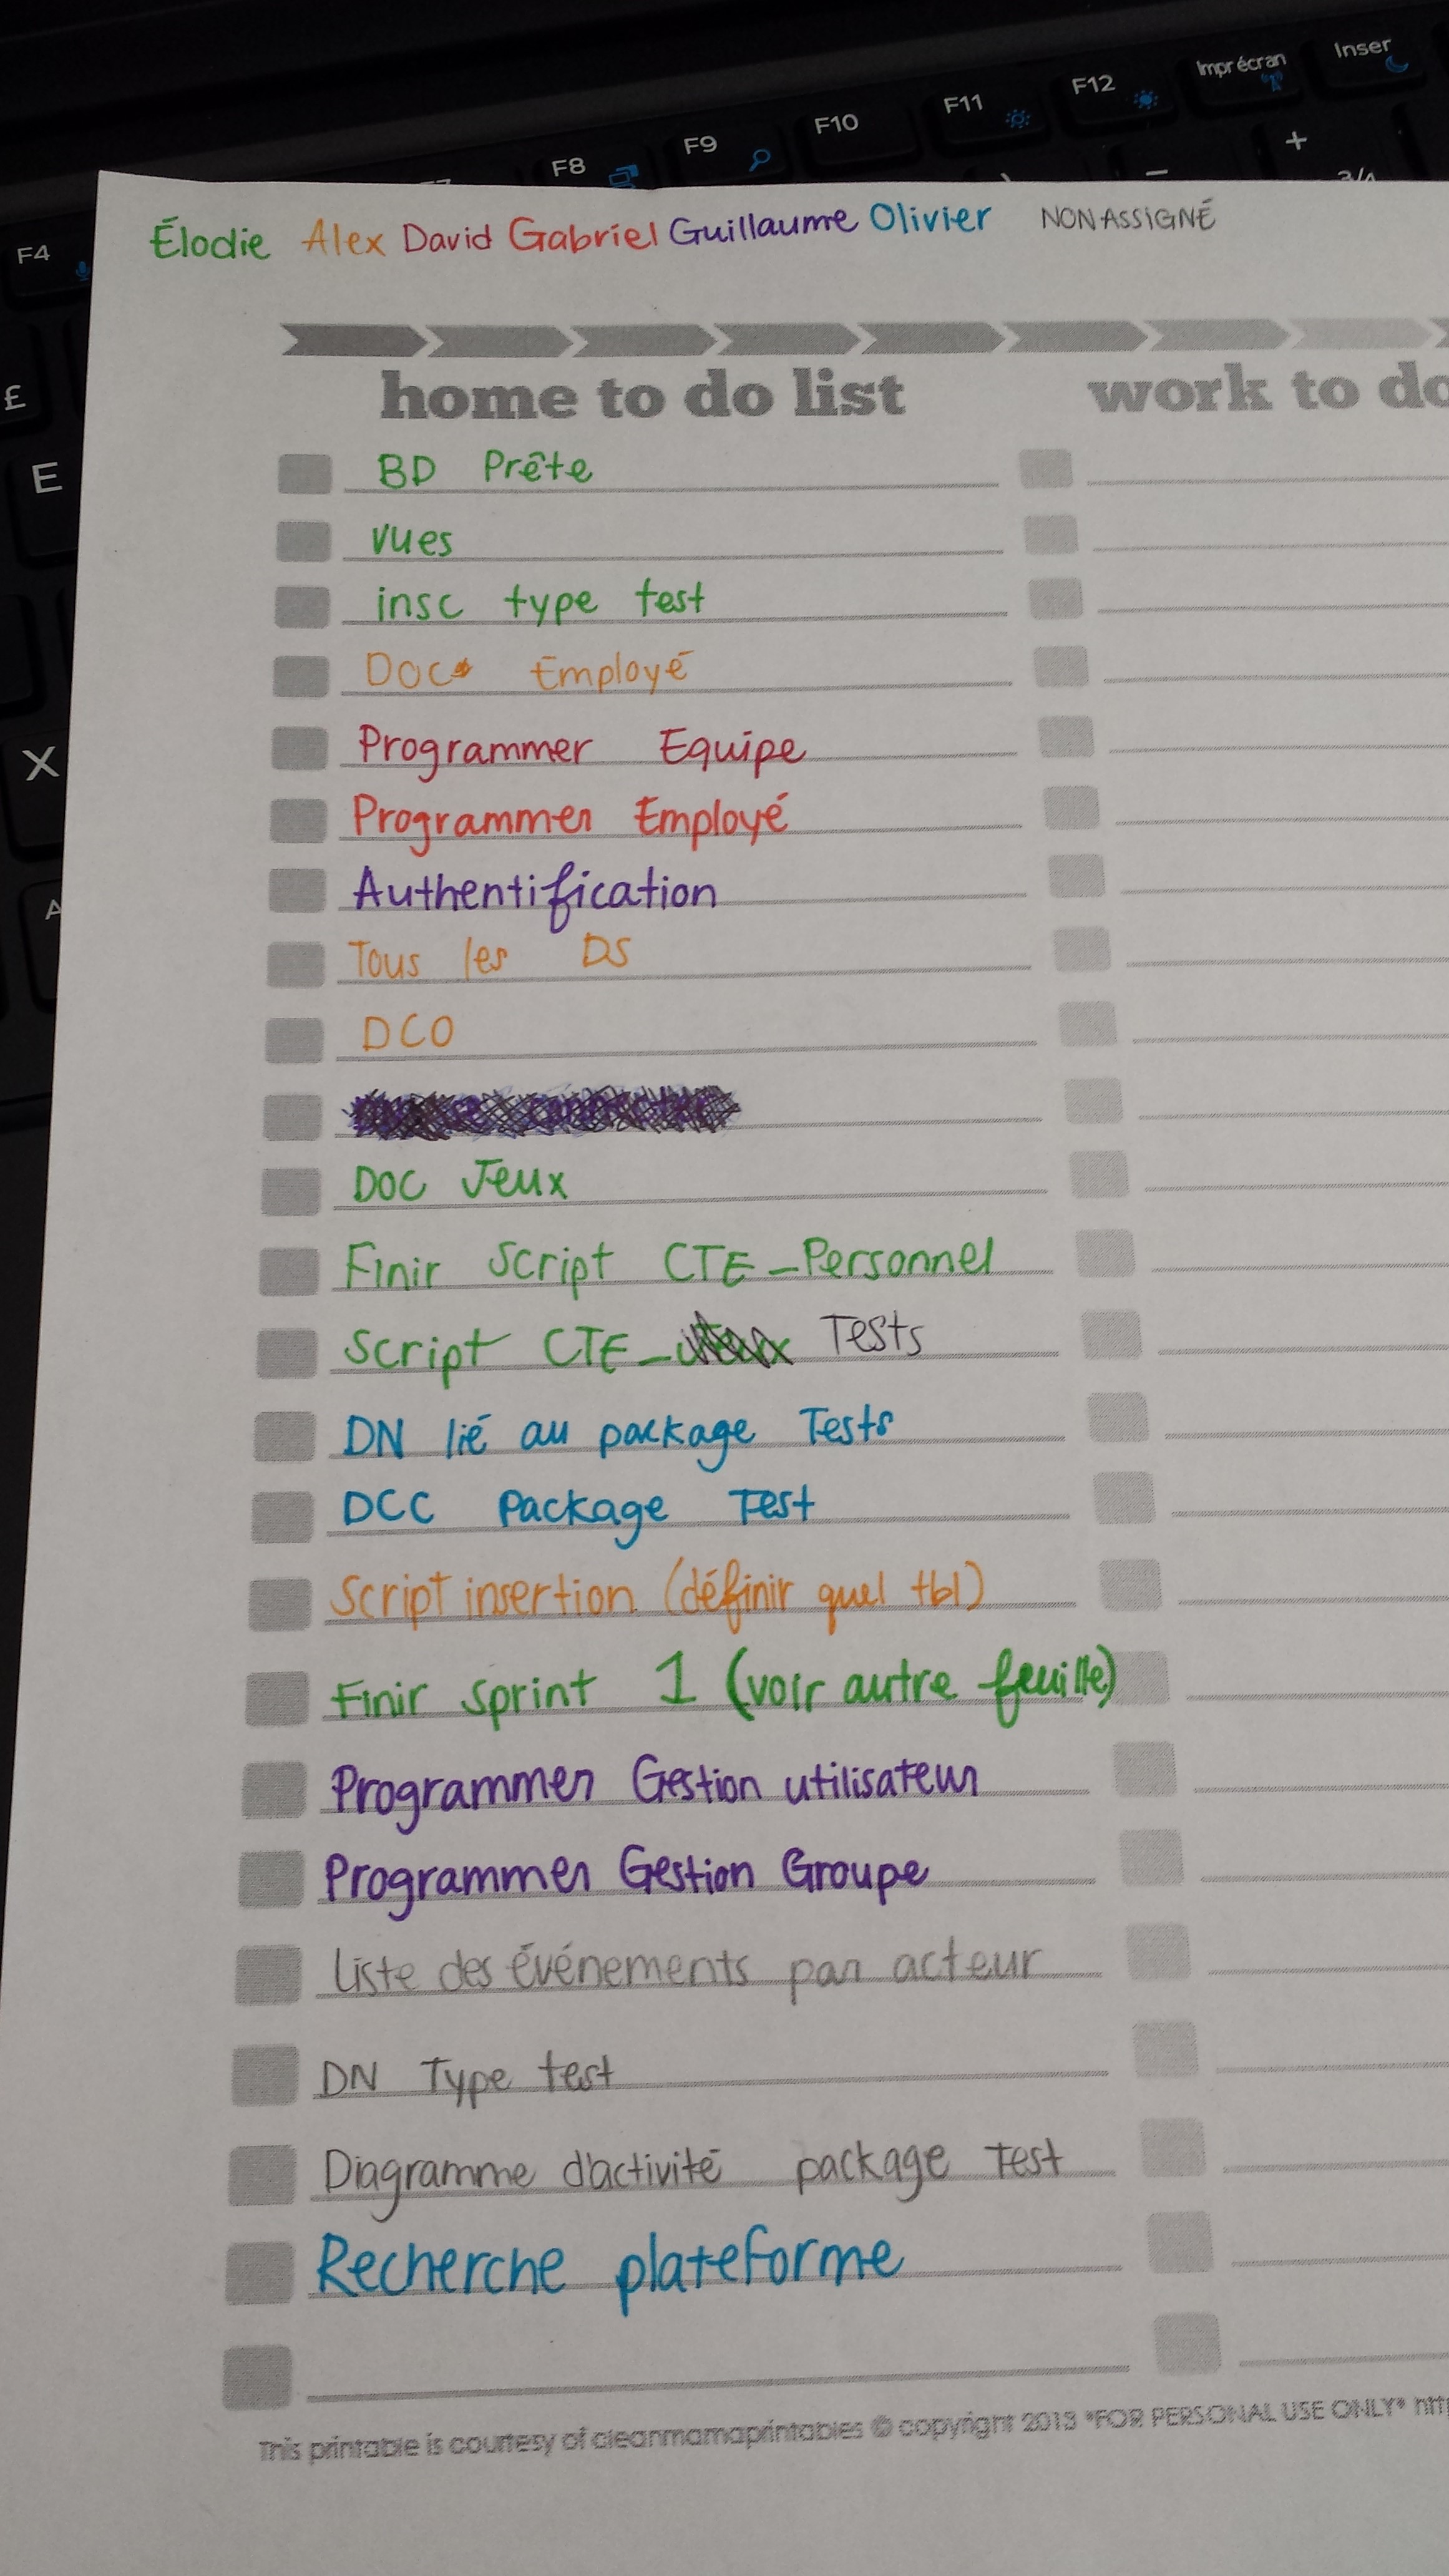 Impr écran Inser
F8 F9 F10 F11 F12
F4
+
-
£
E
X
A
Élodie Alex David Gabriel Guillaume Olivier NON ASSIGNÉ
home to do list work to do
BD Prête
vues
insc type test
Doc Employé
Programmer Equipe
Programmer Employé
Authentification
Tous les DS
DCO
Doc Jeux
Finir Script CTE_Personnel
Script CTE_ Tests
DN lié au package Tests
DCC Package Test
Script insertion (définir quel tbl)
Finir sprint 1 (voir autre feuille)
Programmer Gestion utilisateur
Programmer Gestion Groupe
Liste des événements par acteur
DN Type test
Diagramme d'activité package Test
Recherche plateforme
This printable is courtesy of cleanmamaprintables © copyright 2013 *FOR PERSONAL USE ONLY*